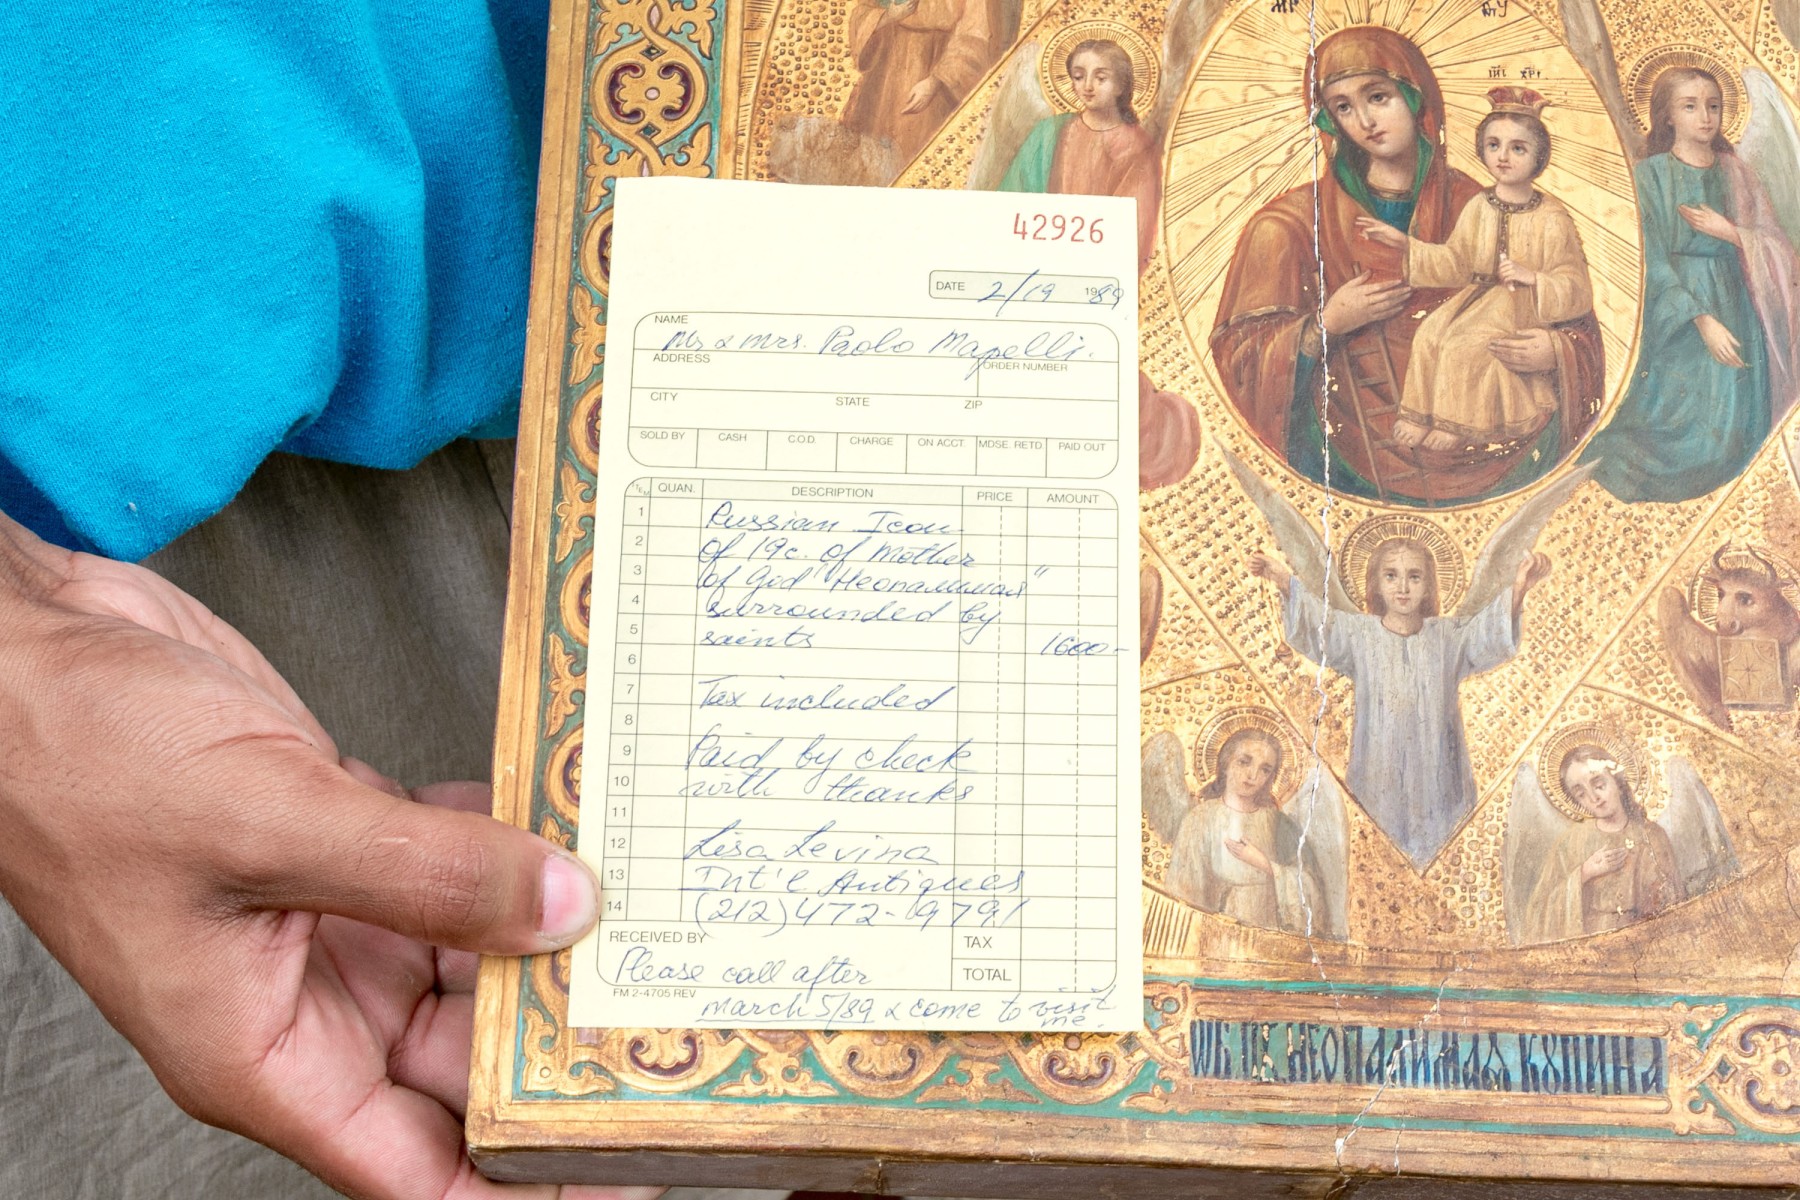 42926
DATE 2/19 1989
NAME
Mr & Mrs. Paolo Mapelli.
ADDRESS
ORDER NUMBER
CITY STATE ZIP
SOLD BY CASH C.O.D. CHARGE ON ACCT. MDSE. RETD. PAID OUT
ITEM QUAN. DESCRIPTION PRICE AMOUNT
1 Russian Icon
2 of 19c. of Mother
3 of God "Неопалимая"
4 surrounded by
5 saints 1600-
6
7 Tax included
8
9 Paid by check
10 with thanks
11
12 Lisa Levina
13 Int'l Antiques
14 (212) 472-1979
RECEIVED BY
TAX
Please call after
TOTAL
FM 2-4705 REV
march 5/89 & come to visit
me.
ІИС ХРС
НЕОПАЛИМАЯ КУПИНА